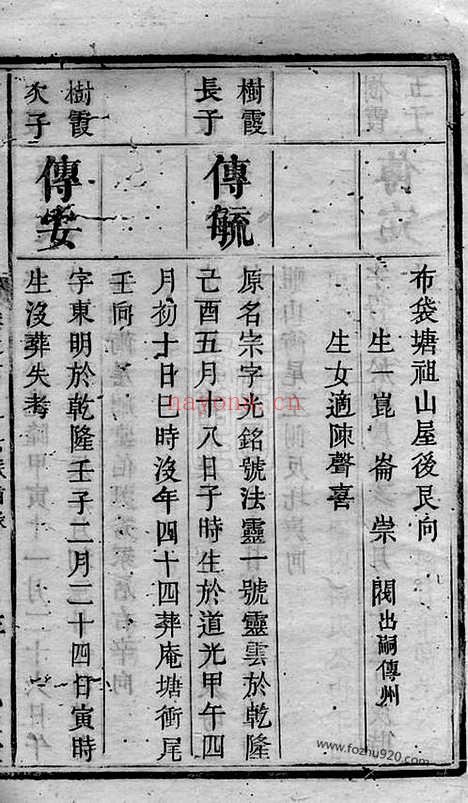 布袋塘祖山屋後艮向
生一崑 崙 崇 閣出嗣傳州
生女適陳聲喜
樹霞
長子
傳毓
原名宗字光銘號法靈一號靈雲於乾隆
己酉五月十八日子時生於道光甲午四
月初十日巳時沒年四十四葬庵塘衝尾
壬向
樹霞
次子
傳安
字東明於乾隆壬子二月二十四日寅時
生沒葬失考
nayonx.net
佛珠网
www.fozhu920.com